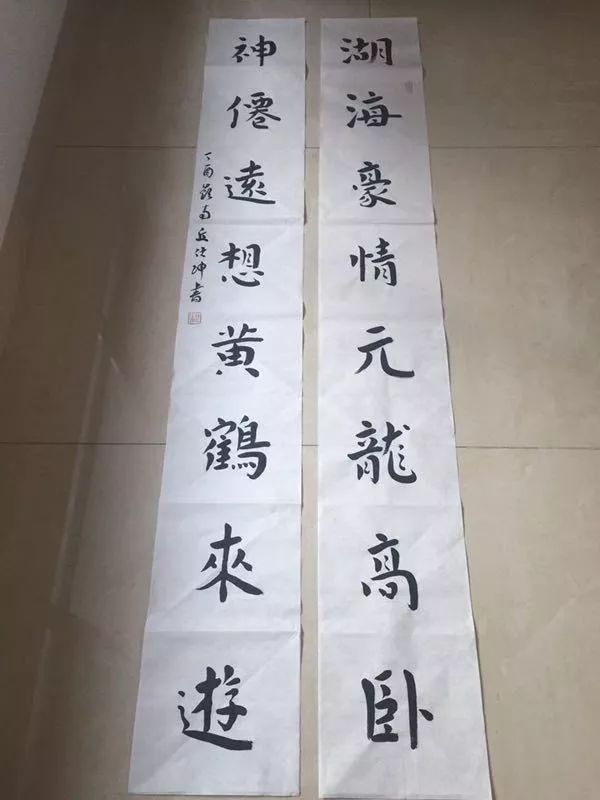 湖海豪情元龍高卧
神僊遠想黄鶴來遊
丁酉嶺南丘仕坤書